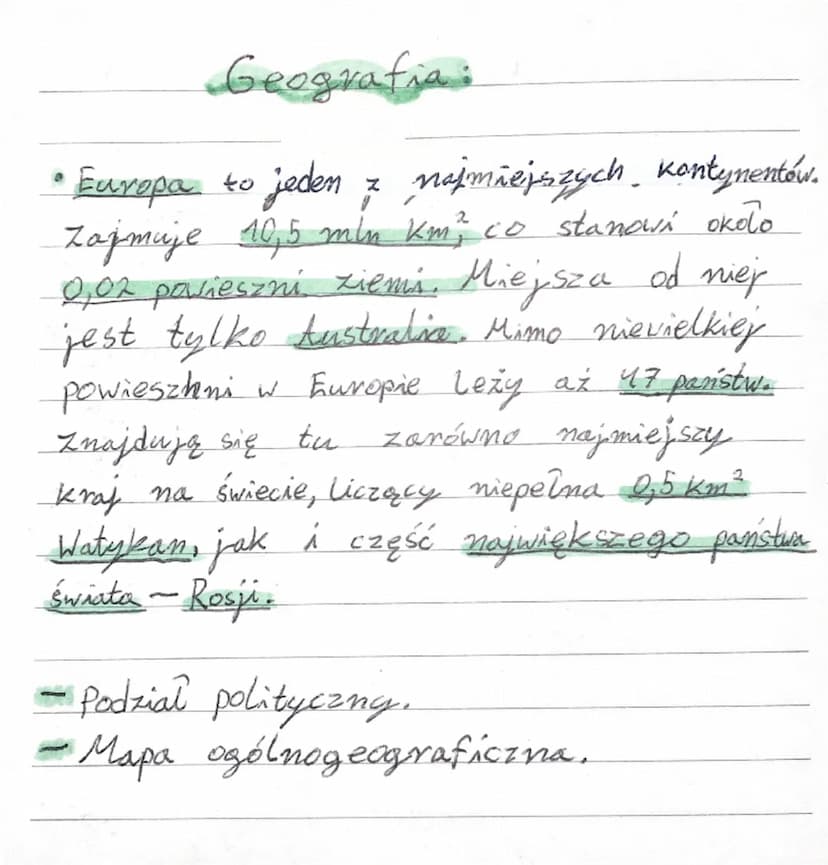 Geografia:
• Europa to jeden z najmiejszych kontynentów.
Zajmuje 10,5 mln km², co stanowi około
0,02 powieszni ziemi. Miejsza od niej
jest tylko Australia. Mimo niewielkiej
powieszhni w Europie leży aż 47 państw.
Znajdują się tu zarówno najmiejszy
kraj na świecie, liczący niepełna 0,5 km²
Watykan, jak i część największego państwa
świata – Rosji.
– Podział polityczny.
– Mapa ogólnogeograficzna.